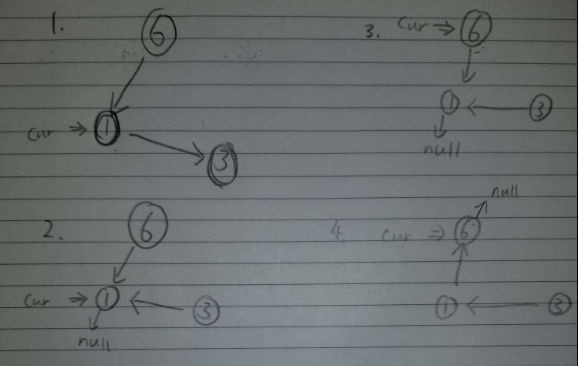 1.
6
cur ⇒ 1
3
2.
6
cur ⇒ 1
3
null
3. cur ⇒ 6
1
3
null
null
4. cur ⇒ 6
1
3